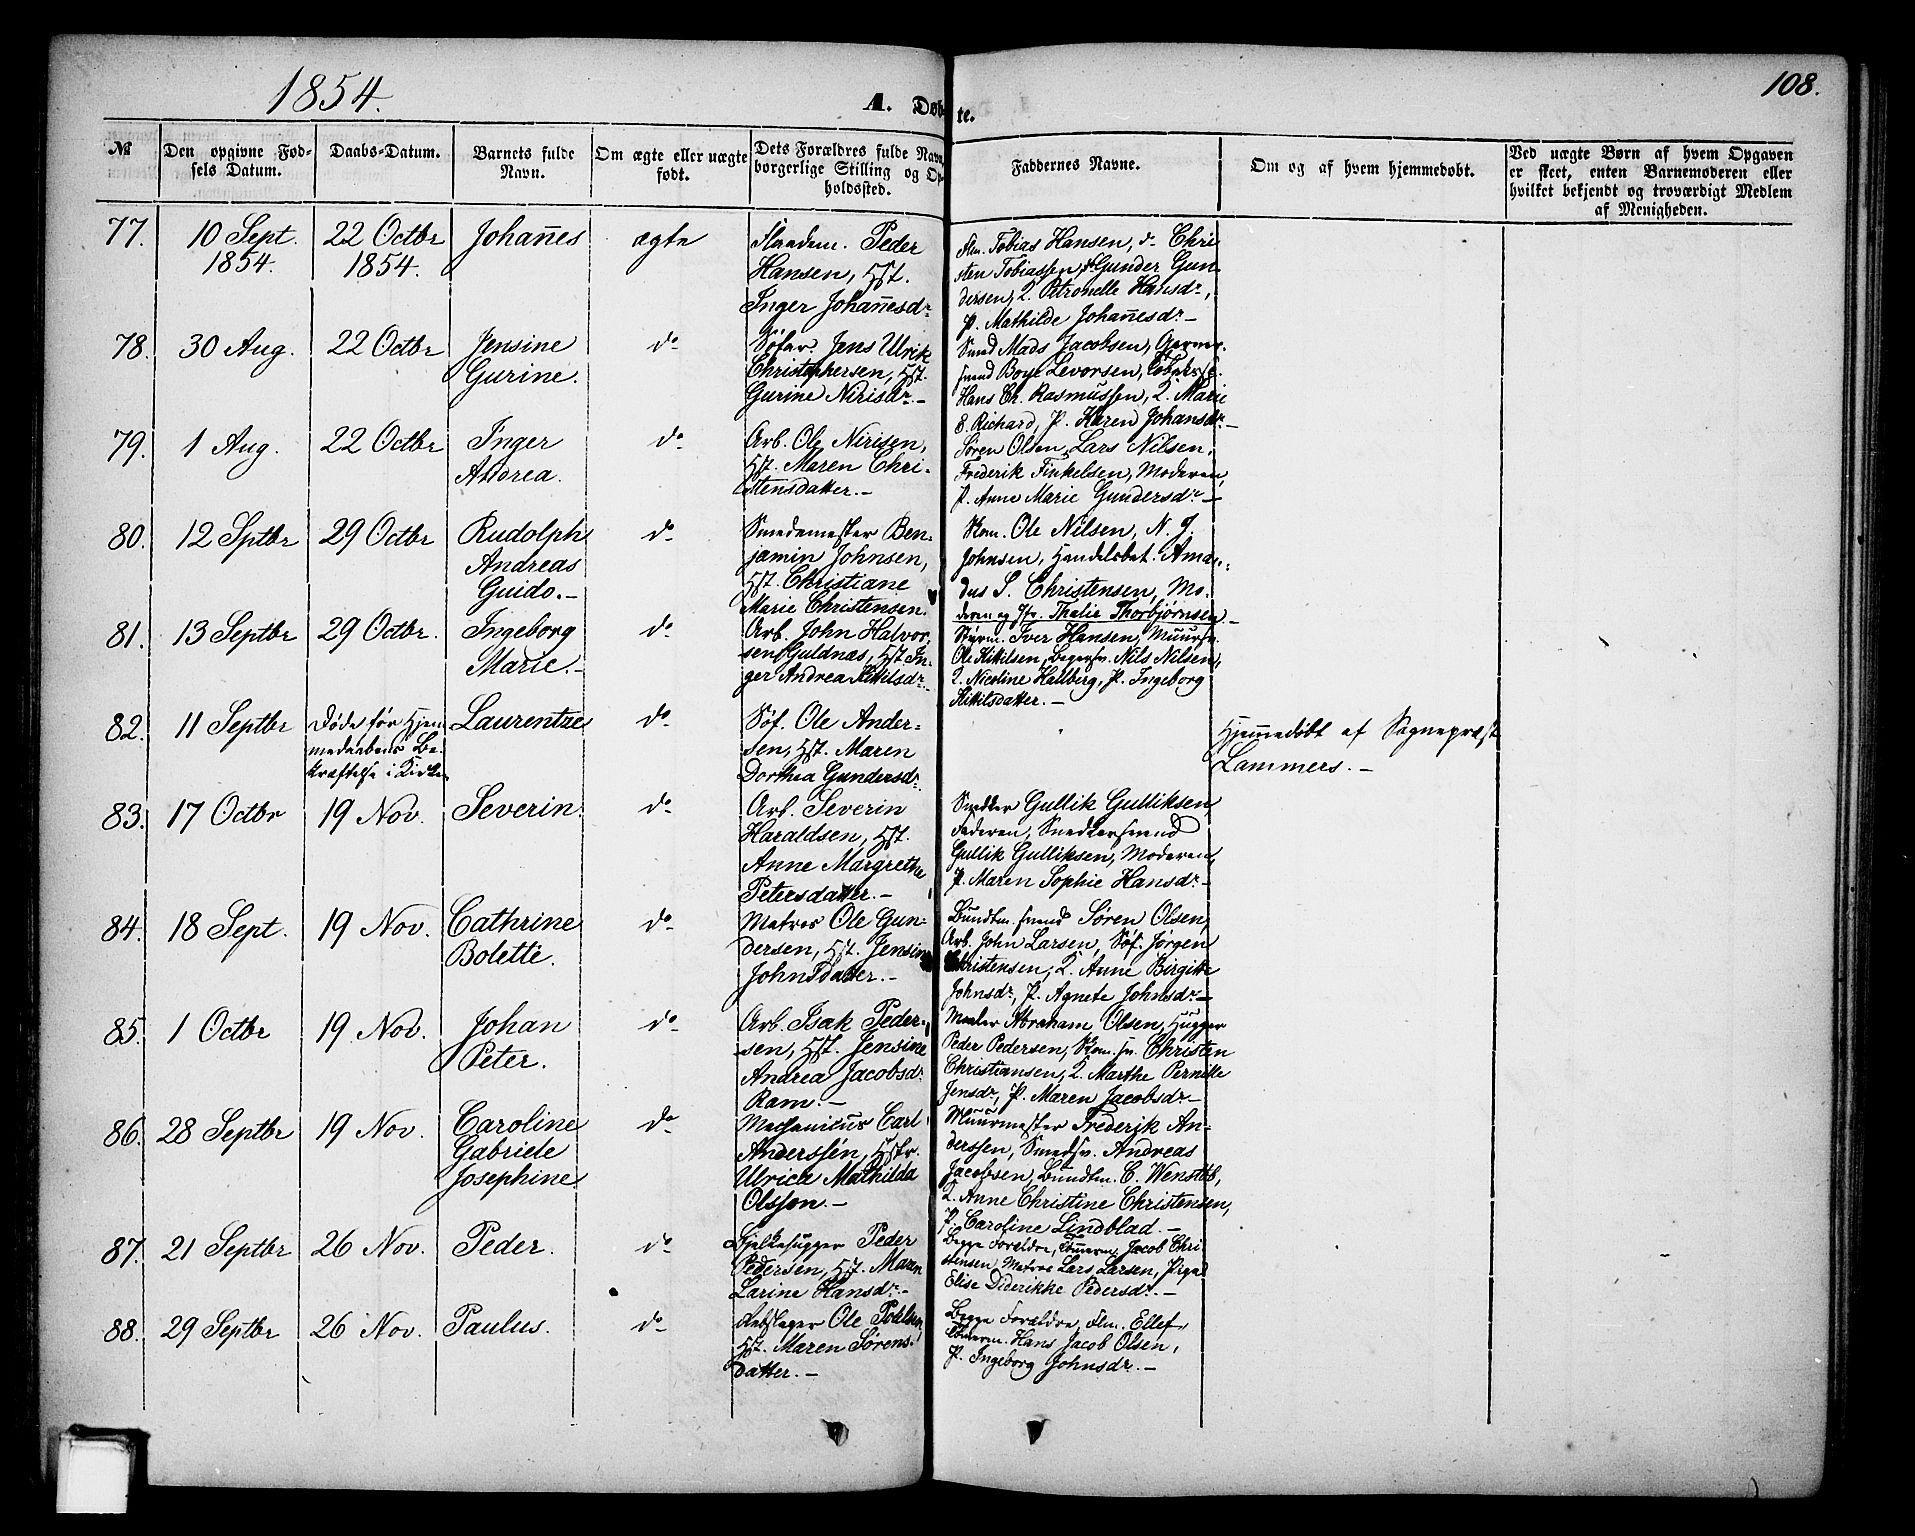 1854.
A. Døb-te.
108.
№
Den opgivne Fød-
sels Datum.
Daabs-Datum.
Barnets fulde
Navn.
Om ægte eller uægte
født.
Dets Forældres fulde Navn,
borgerlige Stilling og Op-
holdssted.
Faddernes Navne.
Om og af hvem hjemmedøbt.
Ved uægte Børn af hvem Opgaven
er skeet, enten Barnemoderen eller
hvilket bekjendt og troværdigt Medlem
af Menigheden.
77.
10 Sept.
1854.
22 Octbr
1854.
Johan̄es
ægte
Peder
Hansen, Hst.
Inger Johan̄esdr
Tobias Hansen, do Chri
sten Tobiassen, do Gunder Gun-
dersen, Q. Petronelle Hansdr,
P. Mathilde Johan̄esdr -
78.
30 Aug.
22 Octbr
Jensine
Gurine.
do
Søfar. Jens Ulrik
Christophersen, Hst.
Gurine Nirisdr. -
Smed Mads Jacobsen, Garver-
svend Boye Levorsen,
Hans Ch. Rasmussen, Q. Marie
E. Richard, P. Karen Johansdr. -
79.
1 Aug.
22 Octbr
Inger
Andrea.
do
Arb. Ole Nirisen,
Hst. Maren Chri-
stensdatter. -
Søren Olsen, Lars Nilsen,
Frederik Finkelsen, Moderen,
P. Anne Marie Gundersdr -
80.
12 Sptbr
29 Octbr
Rudolph
Andreas
Guido. -
do
Smedemester Ben-
jamin Johnsen,
Hst. Christiane
Marie Christensen.
Skom. Ole Nilsen, N. J.
Johnsen, Handelsbet. Aman-
dus S. Christensen, Mo-
deren og Jfr. Thalie Thorbjørnsen -
81.
13 Septbr
29 Octbr.
Ingeborg
Marie. -
do
Arb. John Halvor-
sen Guldnæs, Hst In-
ger Andrea Kittilsdr. -
Styrm. Iver Hansen, Muursv.
Ole Kittilsen, Bagersv. Nils Nilsen,
Q. Nicoline Hallberg, P. Ingeborg
Kittilsdatter. -
82.
11 Septbr
Døde før Hjem-
medaabens Be-
kræftelse i Kirke
Laurentze
do
Søf. Ole Ander-
sen, Hst. Maren
Dorthea Gundersdr.
Hjemmedøbt af Sognepræst
Lammers. -
83.
17 Octbr
19 Nov.
Severin.
do
Arb. Severin
Haraldsen, Hst.
Anne Margrethe
Petersdatter. -
Snedker Gullik Gulliksen,
Faderen, Snedkersvend
Gullik Gulliksen, Moderen,
P. Maren Sophie Hansdr. -
84.
18 Sept.
19 Nov.
Cathrine
Bolette.
do
Matros Ole Gun-
dersen, Hst. Jensine
Johnsdatter. -
Bundtm. svend Søren Olsen,
Arb. John Larsen, Søf. Jørgen
Christensen, Q. Anne Birgitte
Johnsdr, P. Agnete Johnsdr. -
85.
1 Octbr
19 Nov.
Johan
Peter.
do
Arb. Isak Peder-
sen, Hst. Jensine
Andrea Jacobsdr.
Ram. -
Maler Abraham Olsen, Hugger
Peder Pedersen, Skom. sv. Christen
Christiansen, Q. Marthe Pernille
Jensdr, P. Maren Jacobsdr -
86.
28 Septbr
19 Nov.
Caroline
Gabriele
Josephine.
do
Mechanicus Carl
Anderssén, Hstr.
Ulrica Mathilda
Olsson. -
Muurmester Frederik An-
derssen, Smedsv. Andreas
Jacobsen, Bundtm. C. Wenstøb,
Q. Anne Christine Christensen,
P. Caroline Lindblad. -
87.
21 Septbr
26 Nov.
Peder.
do
Bjelkehugger Peder
Pedersen, Hst. Maren
Larine Hansdr. -
Begge Forældre, Jacob Chri-
stensen, Matros Lars Larsen, Pige
Elise Diderikke Pedersdr. -
88.
29 Septbr
26 Nov.
Paulus.
do
Rebslager Ole
Hst. Maren Sørens-
datter. -
Begge Forældre, Ellef,
Hans Jacob Olsen,
P. Ingeborg Johnsdr. -